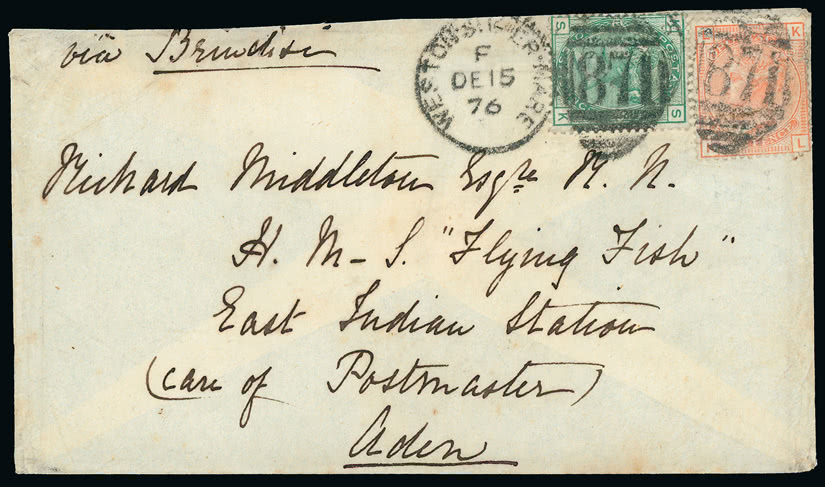 via Brindisi
WESTON-SUPER-MARE
F
DE 15
76
870
870
S
S
K
K
L
Richard Middleton Esqre R. N.
H. M - S. "Flying Fish"
East Indian Station
(care of Postmaster)
Aden